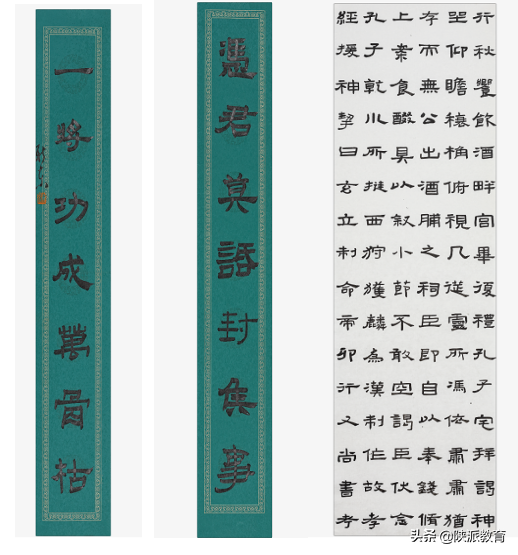 行秋饗飲酒畔宮畢復禮孔子宅拜謁神
坐仰瞻榱桷俯視几筵靈所馮依肅肅猶
存而無公出酒脯之祠臣即自以奉錢脩
上案食醊具以叙小節不敢空謁臣伏念
孔子乾川所挺西狩獲麟為漢制作故孝
經援神挈曰玄丘制命帝卯行又尚書考
憑君莫語封侯事
一將功成萬骨枯
头条 @陕派教育